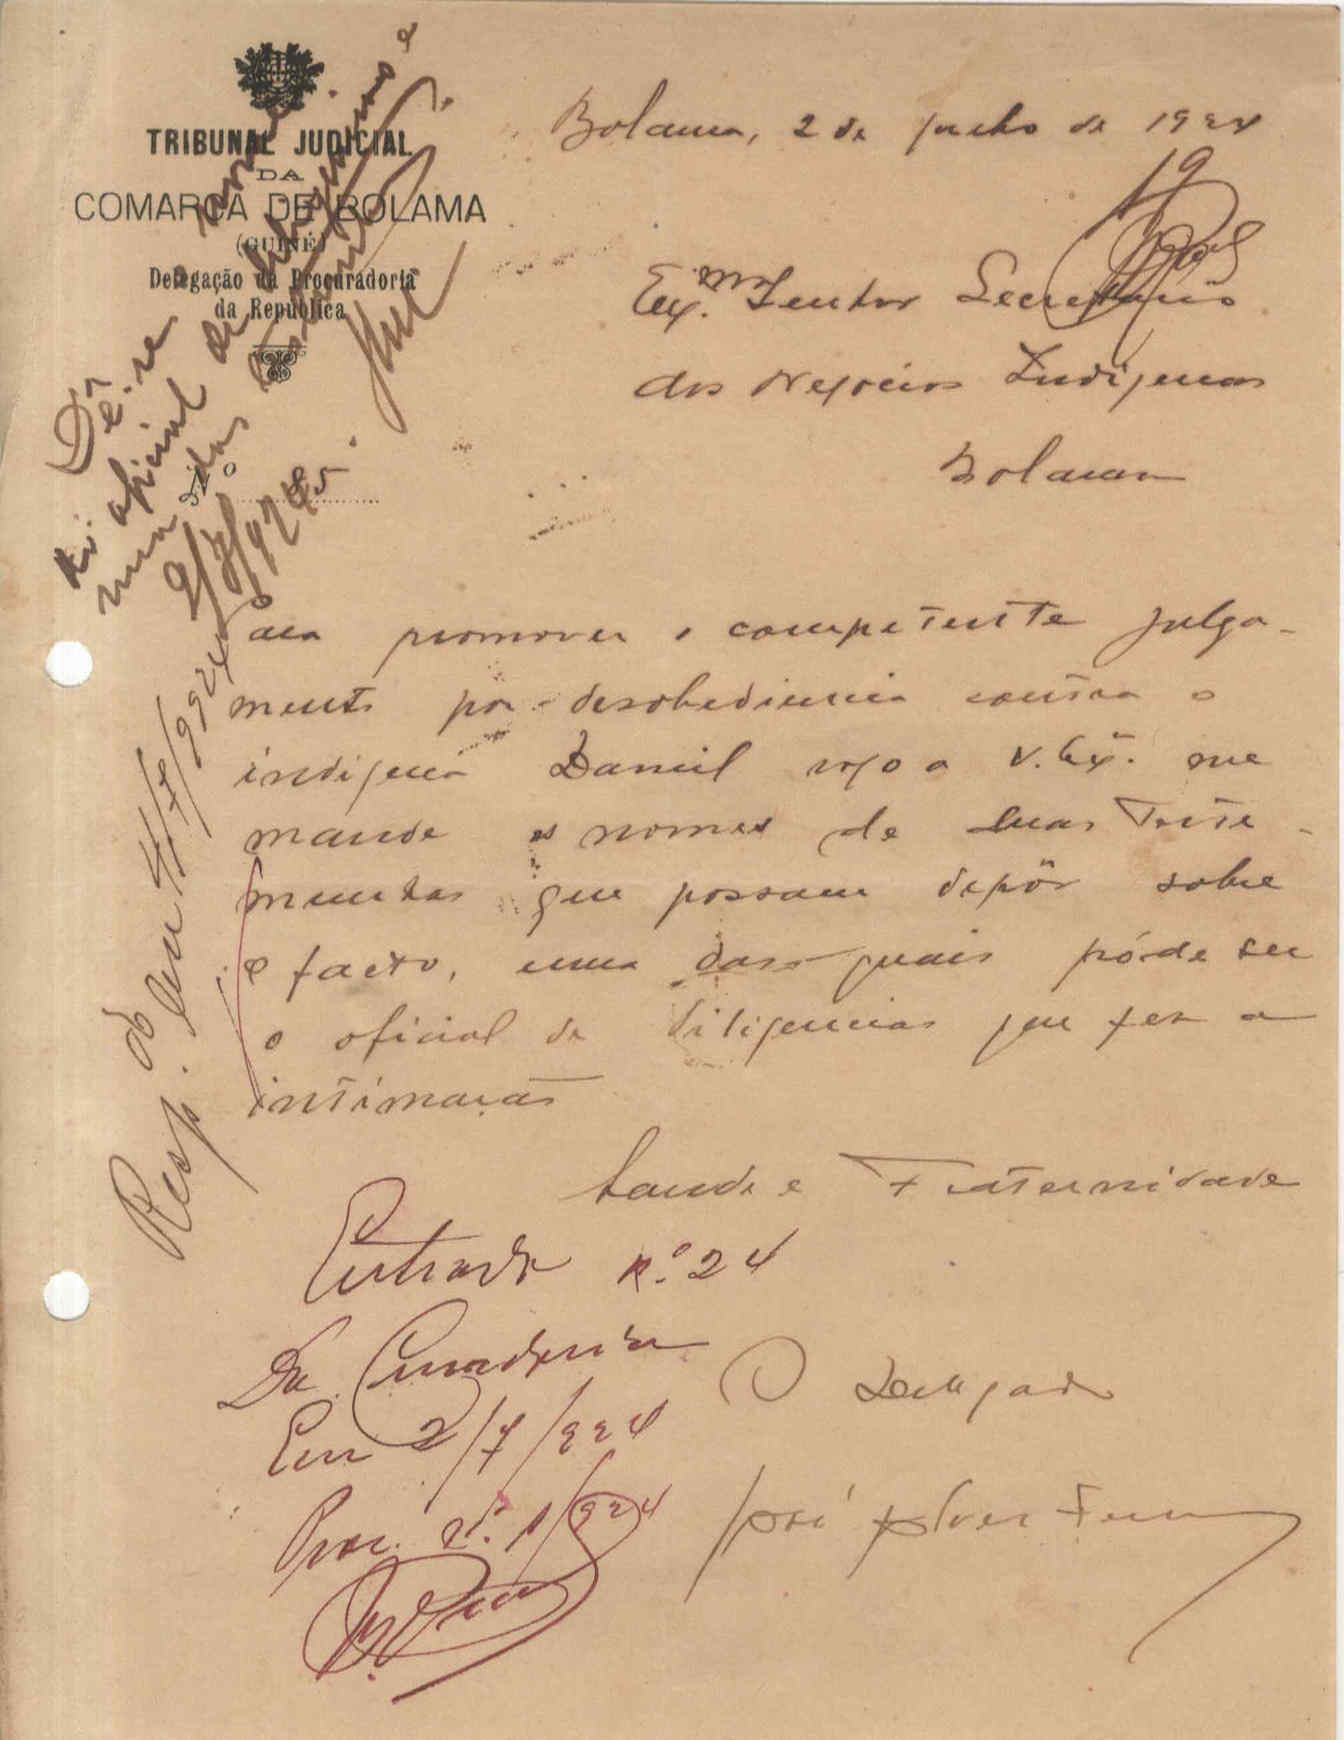 TRIBUNAL JUDICIAL
DA
COMARCA DE BOLAMA
(GUINÉ)
Delegação da Procuradoria
da Republica
Nº
Bolama, 2 de Julho de 1924
19
Exmo. Senhor Secretario
dos Negocios Indigenas
Bolama
Dê-se
oficial de
2/7/924
Para promover o competente julga-
mento por desobediencia contra o
indigena Daniel rogo a V. Exa. me
mande os nomes de duas teste-
munhas que possam depôr sobre
o facto, uma das quais póde ser
o oficial de diligencias que fez a
intimação
Saude e Fraternidade
O Delegado
José
Respdo em 4/7/924
Entrada n.º 24
Da Curadoria
Em 2/7/924
Proc. nº. 1/924